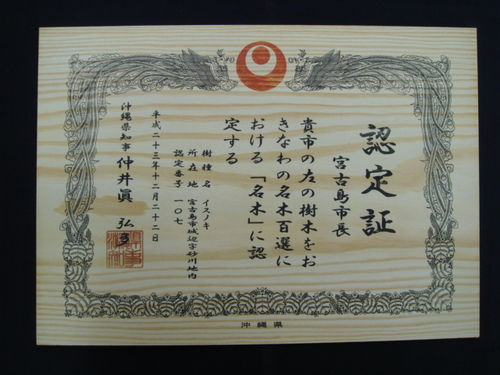 認定証
宮古島市長
貴市の左の樹木をお
きなわの名木百選に
おける「名木」に認
定する
樹種名 イスノキ
所在地 宮古島市城辺字砂川地内
認定番号 一〇七
平成二十三年十二月二十二日
沖縄県知事 仲井眞 弘多
沖縄県